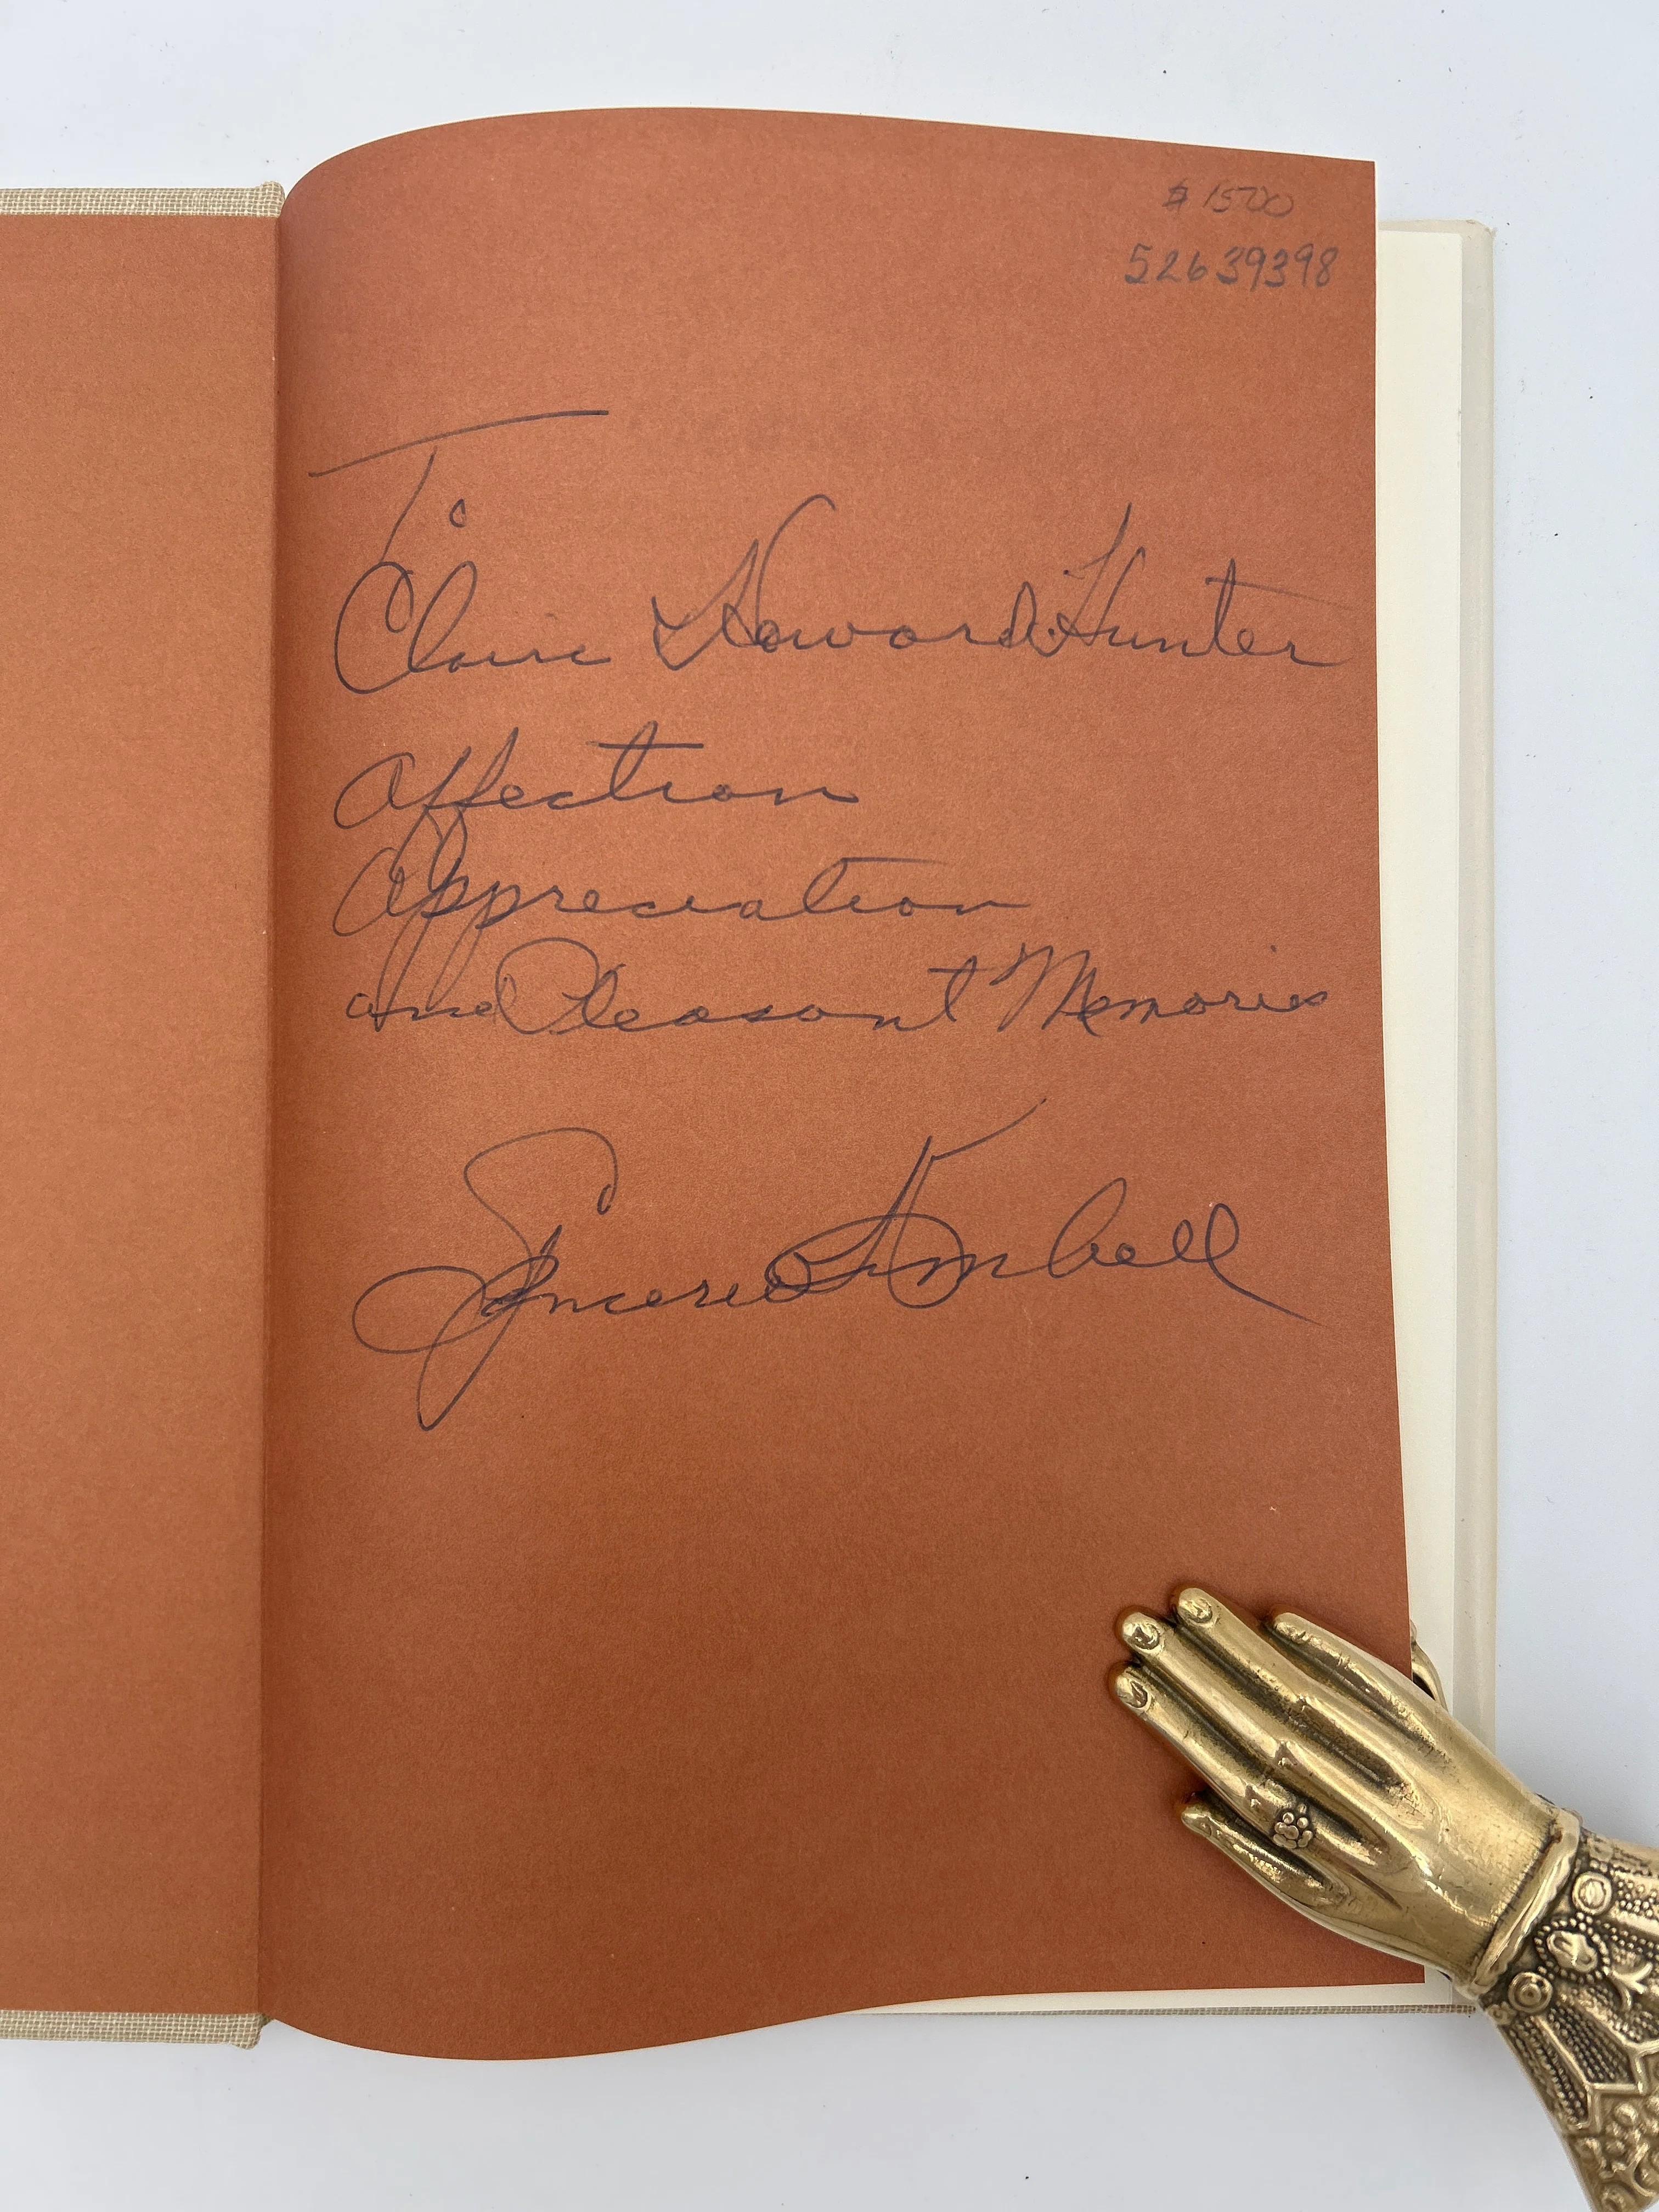 $1500
52639398
To
Claire & Howard Hunter
Affection
Appreciation
and Pleasant Memories
Spencer W Kimball